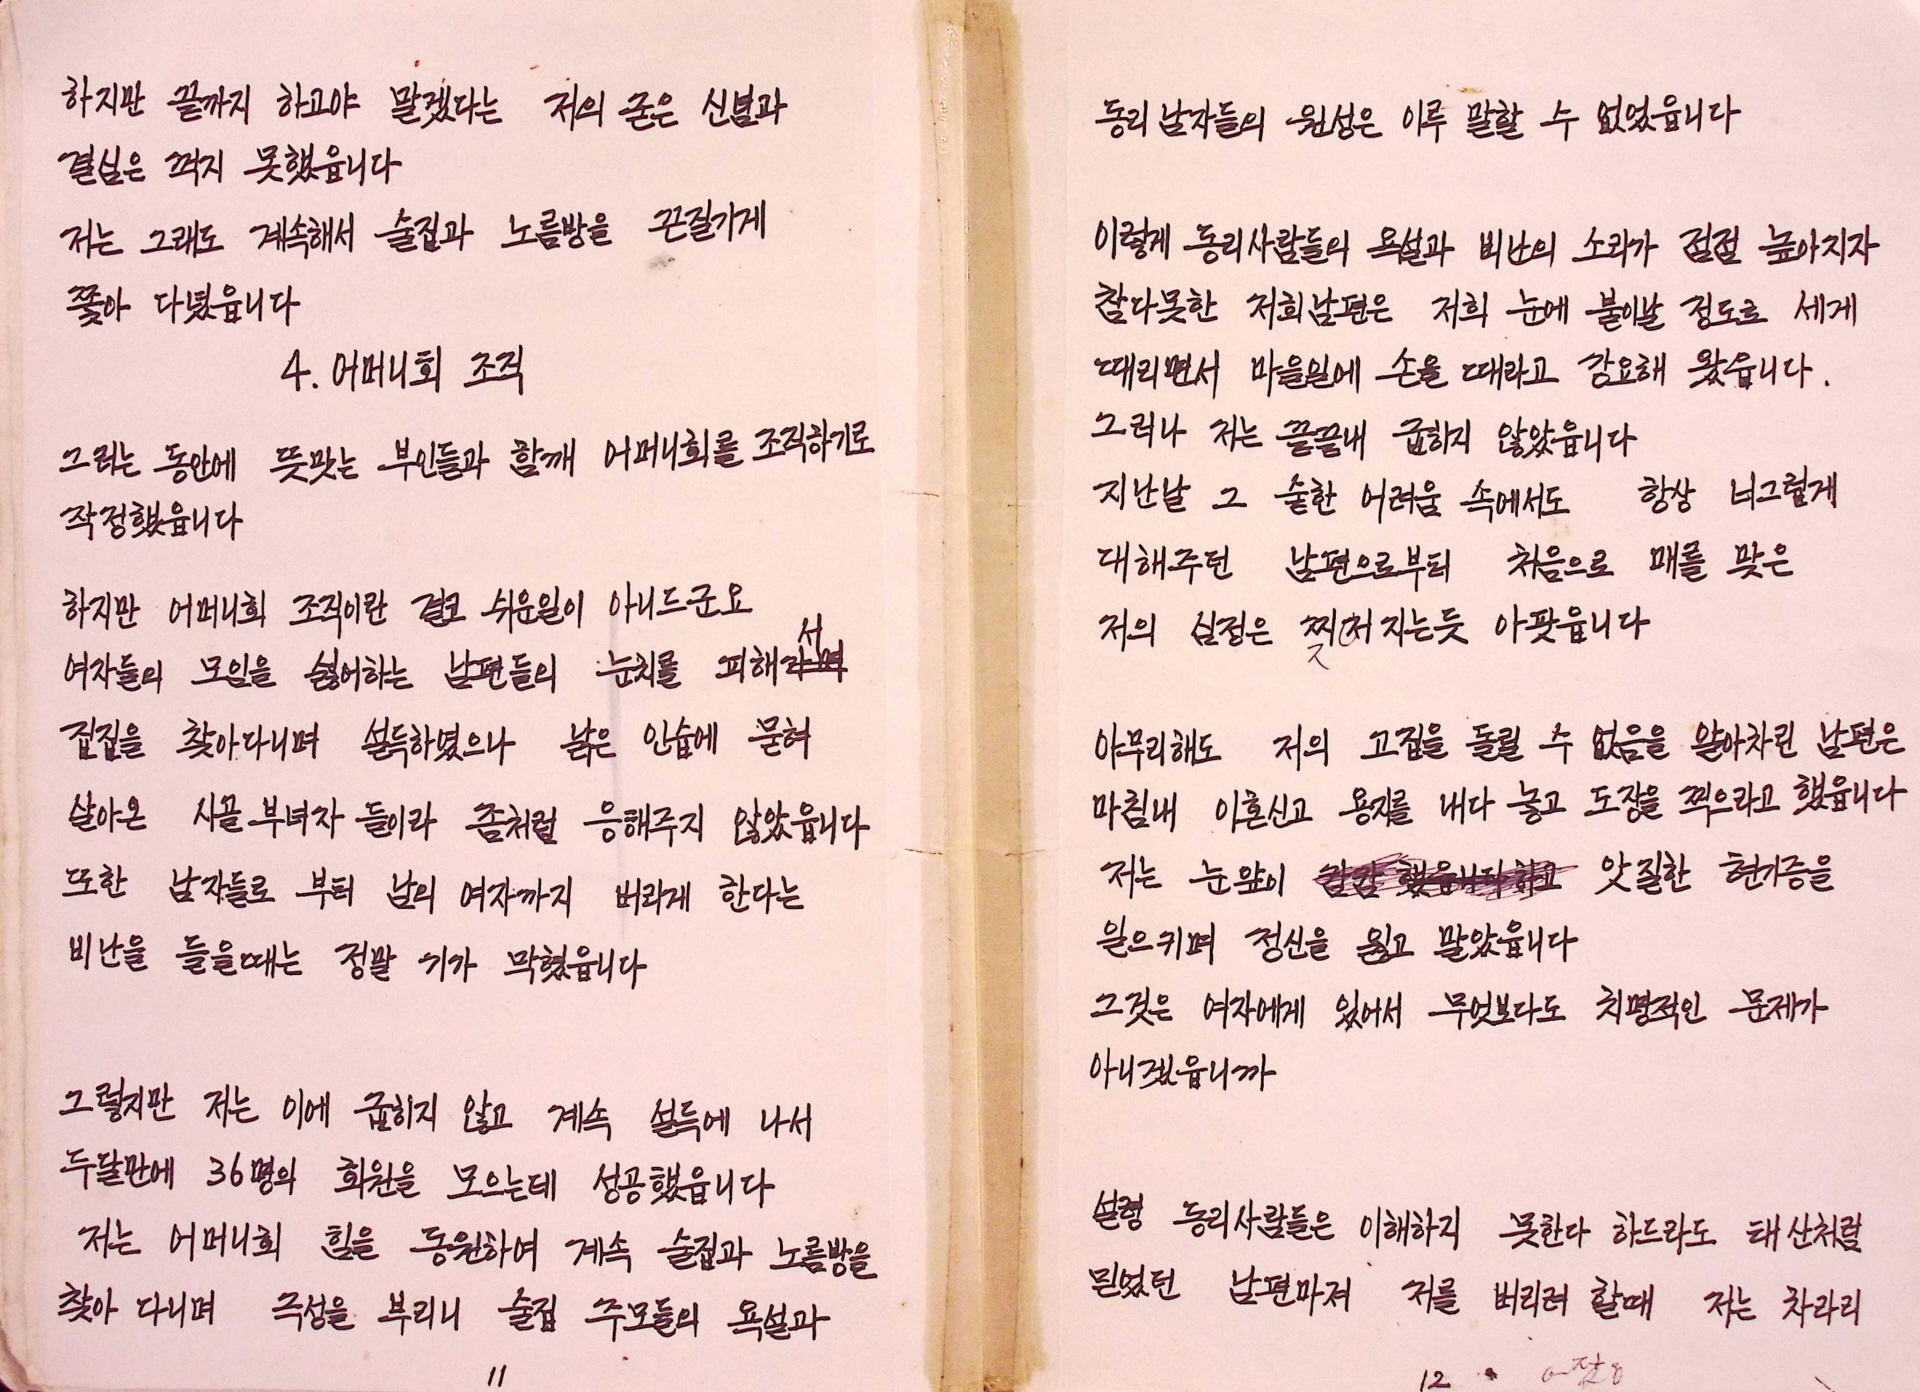 하지만 끝까지 하고야 말겠다는 저의 굳은 신념과
결심은 꺽지 못했읍니다
저는 그래도 계속해서 술집과 노름방을 끈질기게
쫓아 다녔읍니다
4. 어머니회 조직
그러는 동안에 뜻맞는 부인들과 함깨 어머니회를 조직하기로
작정했읍니다
하지만 어머니회 조직이란 결코 쉬운일이 아니드군요
여자들의 모임을 싫어하는 남편들의 눈치를 피해서
집집을 찾아다니며 설득하였으나 낡은 인습에 묻혀
살아온 시골 부녀자 들이라 좀처럼 응해주지 않았읍니다
또한 남자들로 부터 남의 여자까지 버리게 한다는
비난을 들을때는 정말 기가 막혔읍니다
그렇지만 저는 이에 굽히지 않고 계속 설득에 나서
두달만에 36명의 회원을 모으는데 성공했읍니다
저는 어머니회 힘을 동원하여 계속 술집과 노름방을
찾아 다니며 극성을 부리니 술집 주모들의 욕설과
11
동리 남자들의 원성은 이루 말할 수 없었읍니다
이렇게 동리사람들의 욕설과 비난의 소리가 점점 높아지자
참다못한 저희남편은 저희 눈에 불이날 정도로 세게
때리면서 마을일에 손을 때라고 강요해 왔읍니다.
그러나 저는 끝끝내 굽히지 않았읍니다
지난날 그 숱한 어려움 속에서도 항상 너그럽게
대해주던 남편으로부터 처음으로 매를 맞은
저의 심정은 찢저 지는듯 아팟읍니다
아무리해도 저의 고집을 돌릴 수 없음을 알아차린 남편은
마침내 이혼신고 용지를 내다 놓고 도장을 찍으라고 했읍니다
저는 눈앞이 앗질한 현기증을
일으키며 정신을 잃고 말았읍니다
그것은 여자에게 있어서 무엇보다도 치명적인 문제가
아니겠읍니까
설령 동리사람들은 이해하지 못한다 하드라도 태산처럼
믿었던 남편마저 저를 버리려 할때 저는 차라리
12